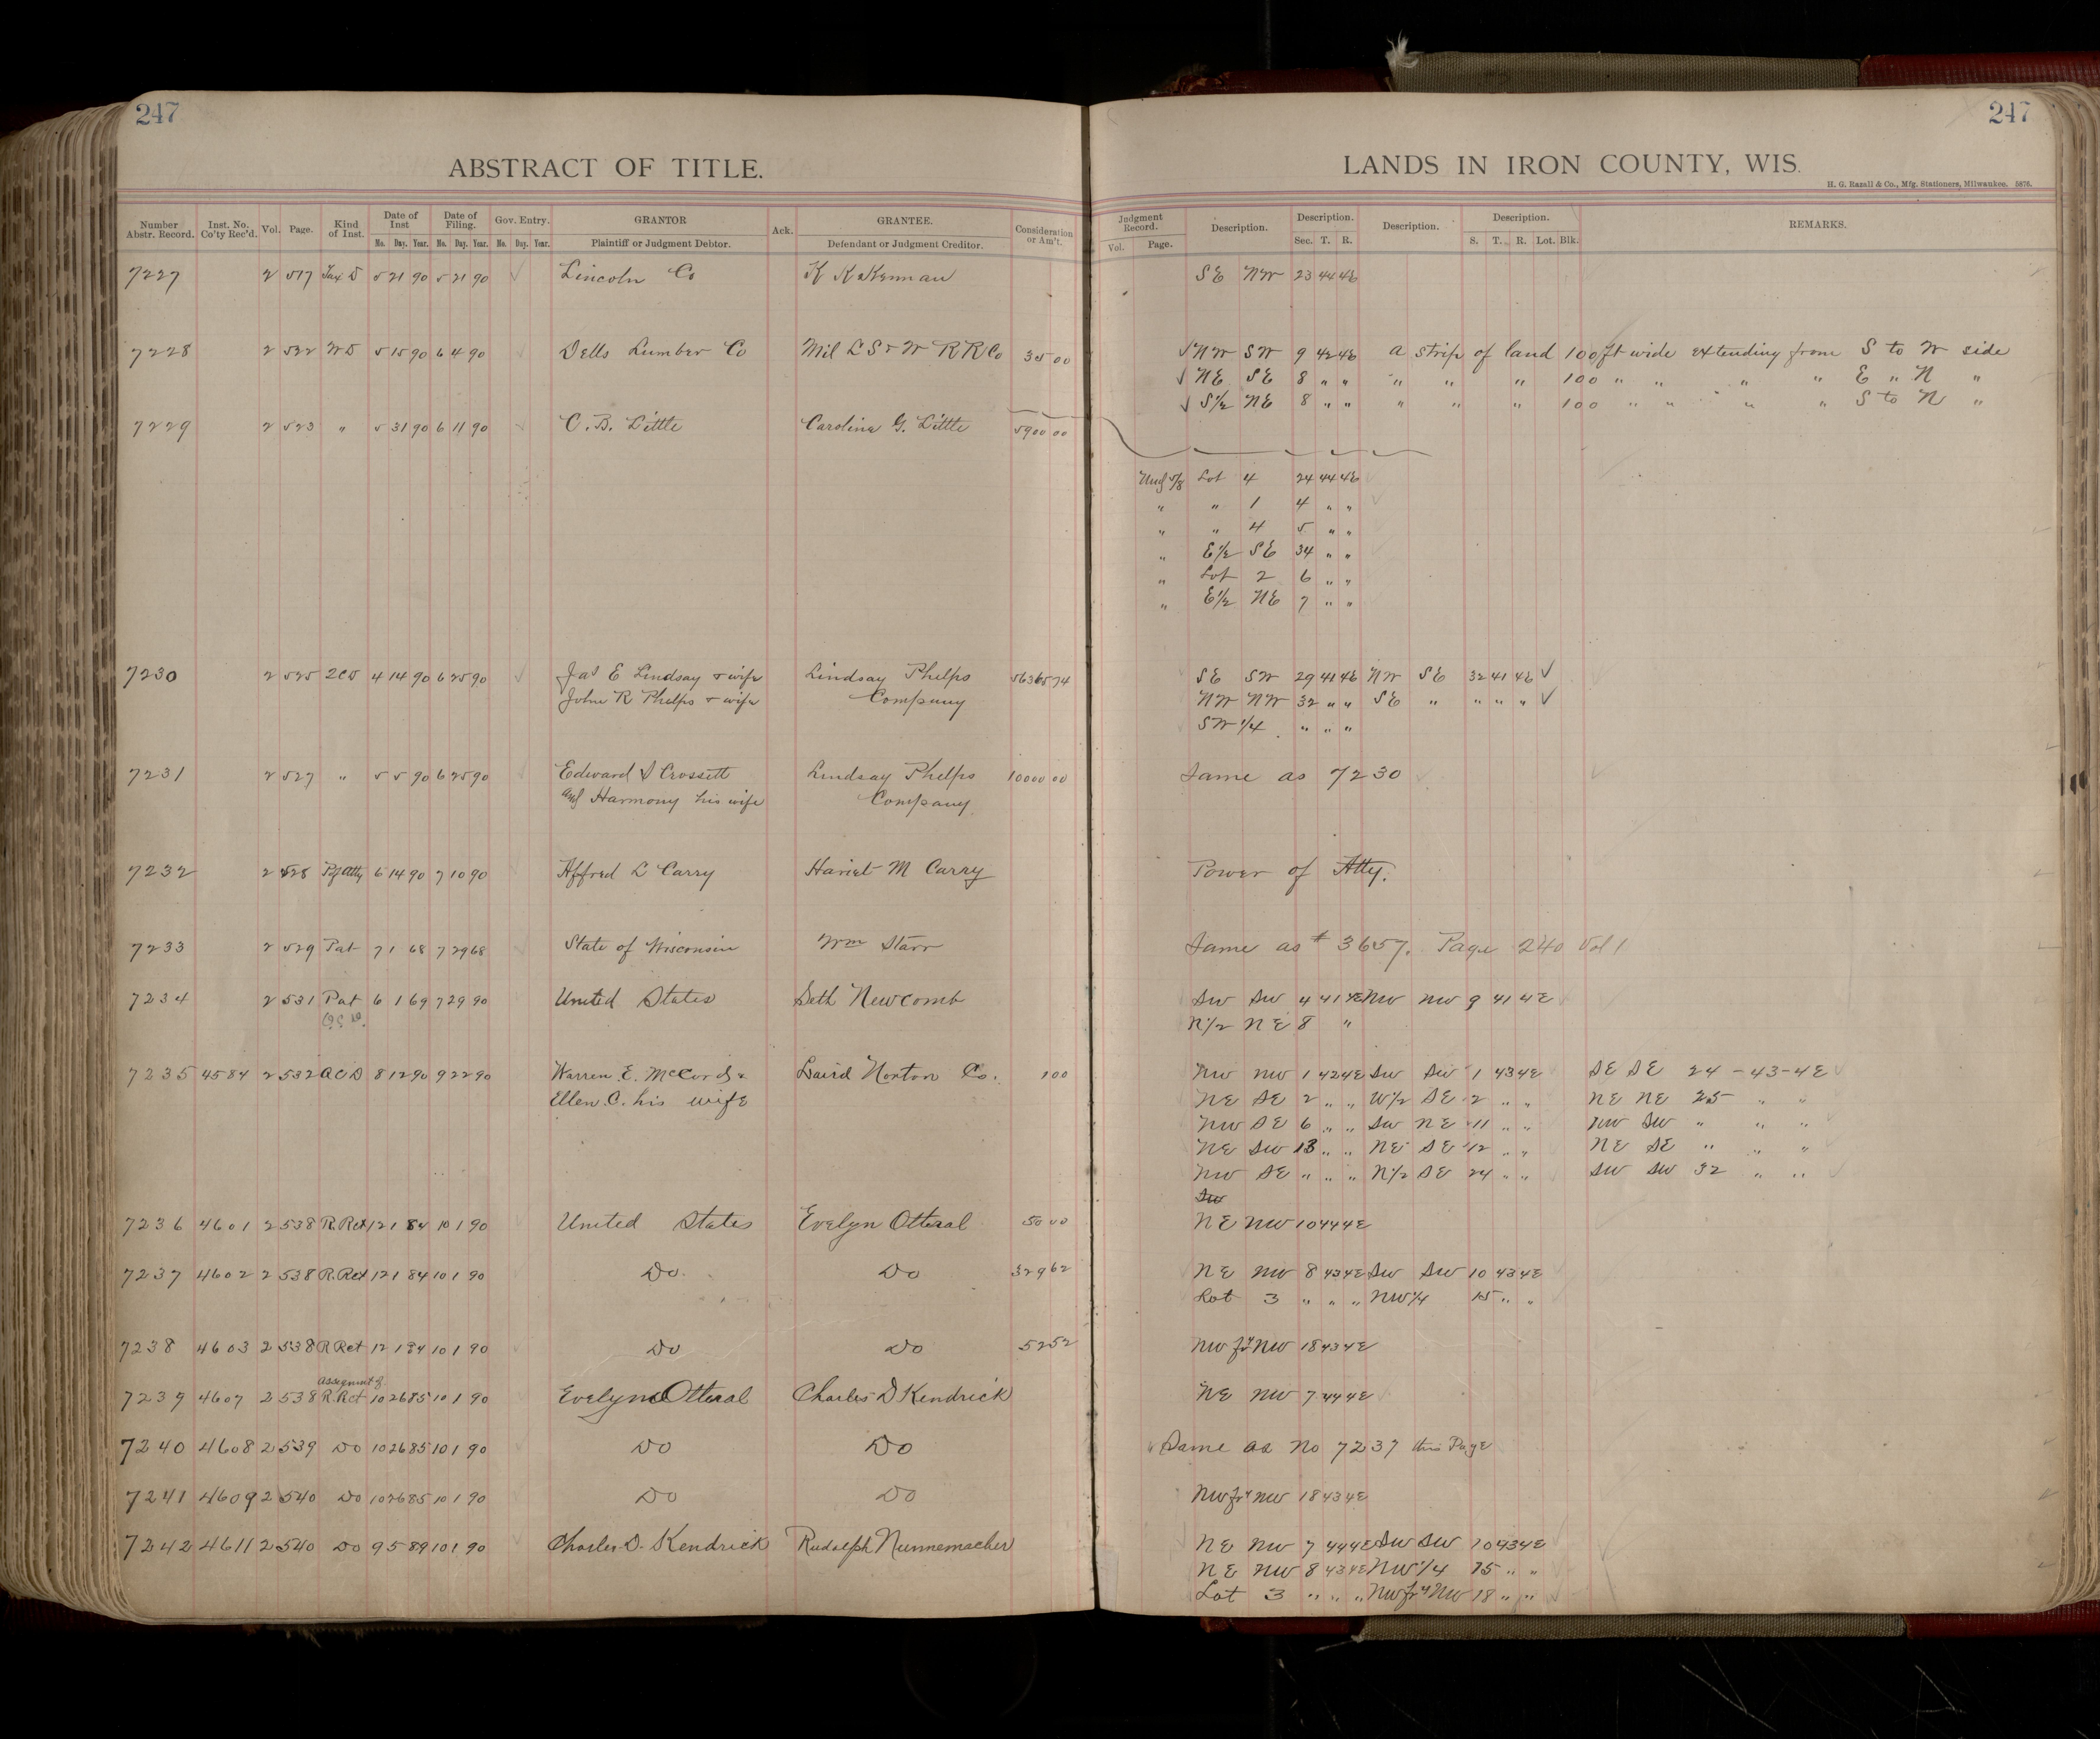 247
247
ABSTRACT OF TITLE.
LANDS IN IRON COUNTY, WIS.
H. G. Razall & Co., Mfg. Stationers, Milwaukee. 5876.
Number Abstr. Record. Inst. No. Co'ty Rec'd. Vol. Page. Kind of Inst. Date of Inst Mo. Day. Year. Date of Filing. Mo. Day. Year. Gov. Entry. Mo. Day. Year. GRANTOR Plaintiff or Judgment Debtor. Ack. GRANTEE. Defendant or Judgment Creditor. Consideration or Am't. Judgment Record. Vol. Page. Description. Description. Sec. T. R. Description. Description. S. T. R. Lot. Blk. REMARKS.
7227 2 517 Tax D 5 21 90 5 21 90 Lincoln Co K K Kennan SE NW 23 44 4E
7228 2 522 WD 5 15 90 6 4 90 Dells Lumber Co Mil L S & W R R Co 35 00 NW SW 9 42 4E a strip of land 100 ft wide extending from S to W side
NE SE 8 " " " " " 100 " " " " E " N "
S1/2 NE 8 " " " " " 100 " " " " S to N "
7229 2 523 " 5 31 90 6 11 90 C. B. Little Caroline G. Little 5900 00
Und 5/8 Lot 4 24 44 4E
" " 1 4 " "
" " 4 5 " "
" E1/2 SE 34 " "
" Lot 2 6 " "
" E1/2 NE 7 " "
7230 2 525 2CD 4 14 90 6 25 90 Jas E Lindsay & wife Lindsay Phelps 56365 74 SE SW 29 41 4E NW SE 32 41 4E
John R Phelps & wife Company NW NW 32 " " SE " " " "
SW 1/4 " " "
7231 2 527 " 5 5 90 6 25 90 Edward S Crossett Lindsay Phelps 10000 00 Same as 7230
and Harmony his wife Company
7232 2 528 P of Atty 6 14 90 7 10 90 Alfred L Carry Hariet M Carry Power of Atty.
7233 2 529 Pat 7 1 68 7 29 68 State of Wisconsin Wm Starr Same as # 3657. Page 240 Vol 1
7234 2 531 Pat 6 1 69 7 29 90 United States Seth Newcomb SW SW 4 41 4E NW NW 9 41 4E
N1/2 NE 8 "
7235 4584 2 532 QCD 8 12 90 9 22 90 Warren E. McCord & Laird Norton Co. 1 00 NW NW 1 42 4E SW SW 1 43 4E SE SE 24 - 43 - 4E
Ellen C. his wife NE SE 2 " " W1/2 SE 2 " " NE NE 25 " "
NW SE 6 " " SW NE 11 " " NW SW " " "
NE SW 13 " " NE SE 12 " " NE SE " " "
NW SE " " " N1/2 SE 24 " " SW SW 32 " "
SW
7236 4601 2 538 R. Rct 12 1 84 10 1 90 United States Evelyn Otteral 50 00 NE NW 10 44 4E
7237 4602 2 538 R. Rct 12 1 84 10 1 90 Do. Do 329 62 NE NW 8 43 4E SW SW 10 43 4E
Lot 3 " " " NW1/4 15 " "
7238 4603 2 538 R Rct 12 1 84 10 1 90 Do Do 52 52 NW frl NW 18 43 4E
Assignmt of
7239 4607 2 538 R. Rct 10 26 85 10 1 90 Evelyn Otteral Charles D Kendrick NE NW 7 44 4E
7240 4608 2 539 Do 10 26 85 10 1 90 Do Do Same as No 7237 this Page
7241 4609 2 540 Do 10 26 85 10 1 90 Do Do NW frl NW 18 43 4E
7242 4611 2 540 Do 9 5 89 10 1 90 Charles D. Kendrick Rudolph Nunnemacher NE NW 7 44 4E SW SW 10 43 4E
NE NW 8 43 4E NW1/4 15 " "
Lot 3 " " " NW frl NW 18 " "